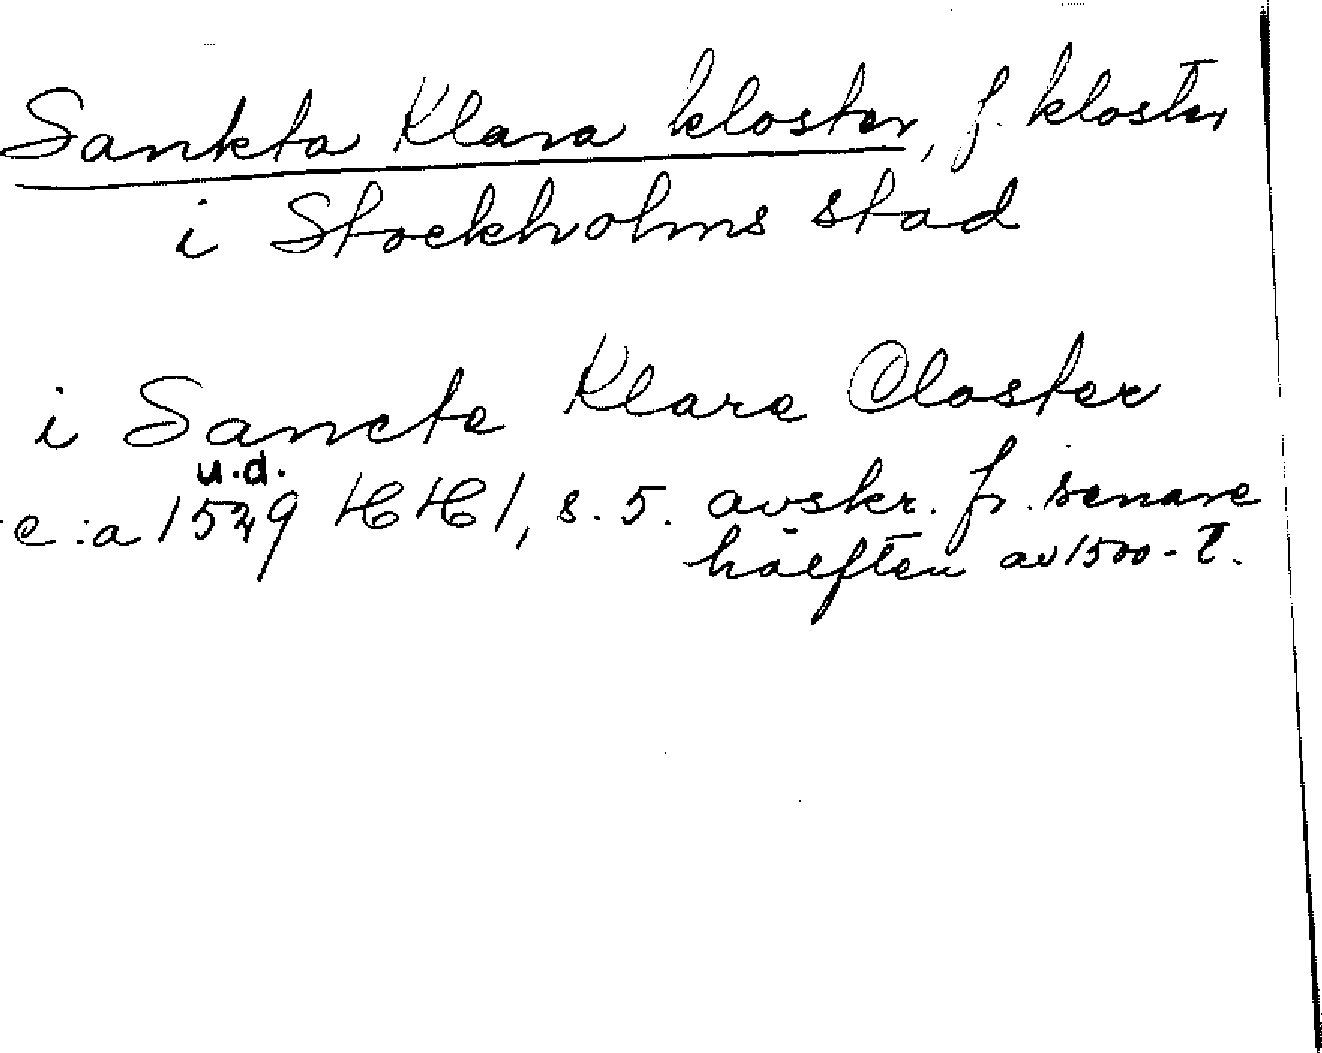 Sankta Klara kloster, f. kloster
i Stockholms stad
i Sancte Klare Closter
u.d.
c:a 1529 HH 1, s. 5. avskr. fr. senare
hälften av 1500-t.